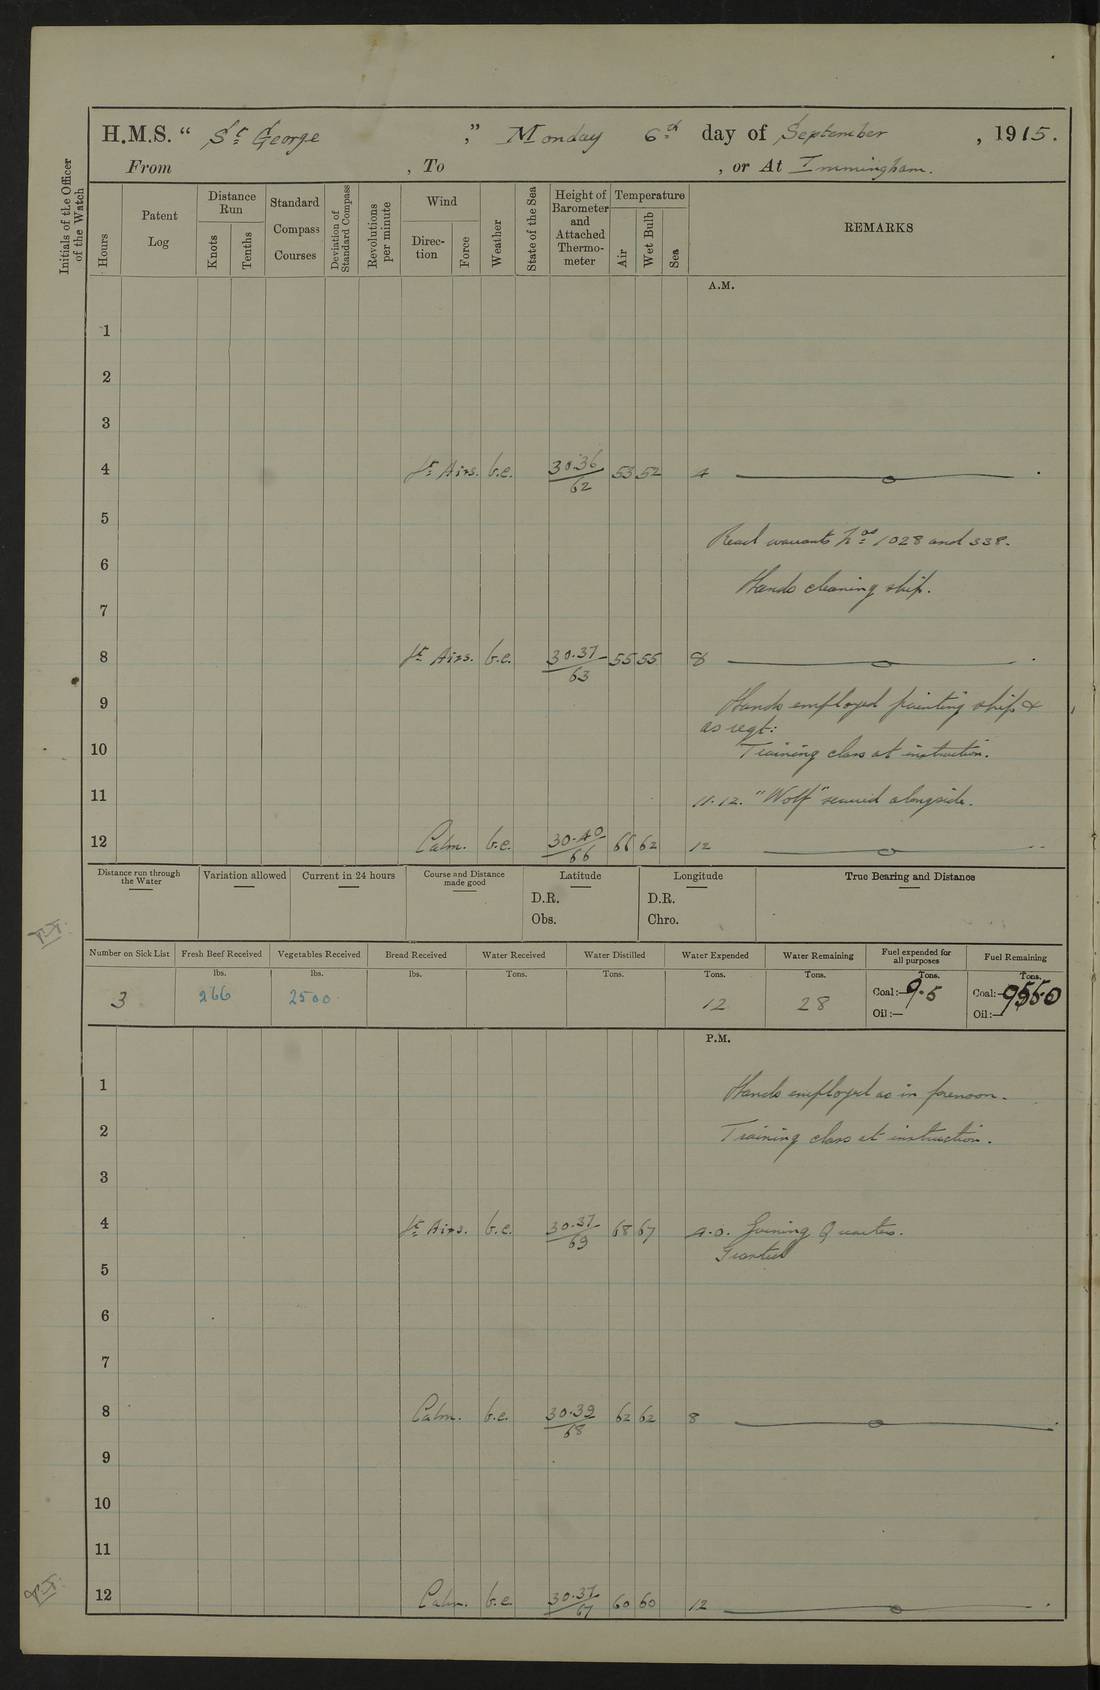 H.M.S. “ St George ,” Monday 6th day of September , 1915.
From , To , or At Immingham.
Initials of the Officer of the Watch
Hours
Patent Log
Distance Run
Knots
Tenths
Standard Compass Courses
Deviation of Standard Compass
Revolutions per minute
Wind
Direction
Force
Weather
State of the Sea
Height of Barometer and Attached Thermometer
Temperature
Air
Wet Bulb
Sea
REMARKS
A.M.
1
2
3
4 Lt Airs. b.c. 30.36/62 53 52 4
5
Read warrants Nos 1028 and 338.
6
Hands cleaning ship.
7
8 Lt Airs. b.c. 30.37/63 55 55 8
9 Hands employed painting ship &
as reqt:
10 Training class at instruction.
11 11.12. "Wolf" secured alongside.
12 Calm. b.c. 30.40/66 66 62 12
Distance run through the Water
Variation allowed
Current in 24 hours
Course and Distance made good
Latitude
D.R.
Obs.
Longitude
D.R.
Chro.
True Bearing and Distance
Number on Sick List
Fresh Beef Received
Vegetables Received
Bread Received
Water Received
Water Distilled
Water Expended
Water Remaining
Fuel expended for all purposes
Fuel Remaining
lbs. lbs. lbs. Tons. Tons. Tons. Tons. Tons. Tons.
3 266 2500 12 28 Coal:— 9.5 Coal:—
Oil:— Oil:—
P.M.
1 Hands employed as in forenoon.
2 Training class at instruction.
3
4 Lt Airs. b.c. 30.37/69 68 67 4.0. Evening Quarters.
5
6
7
8 Calm. b.c. 30.39/68 62 62 8
9
10
11
12 Calm. b.c. 30.37/67 60 60 12